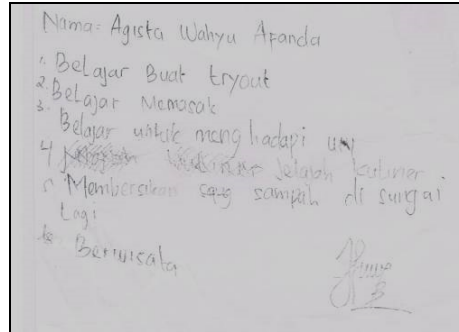 Nama: Agista Wahyu Afanda
1. Belajar Buat tryout
2. Belajar Memasak
3. Belajar untuk menghadapi UN
4 Jelajah kuliner
5 Membersikan sampah di sungai
Lagi
6 Berwisata